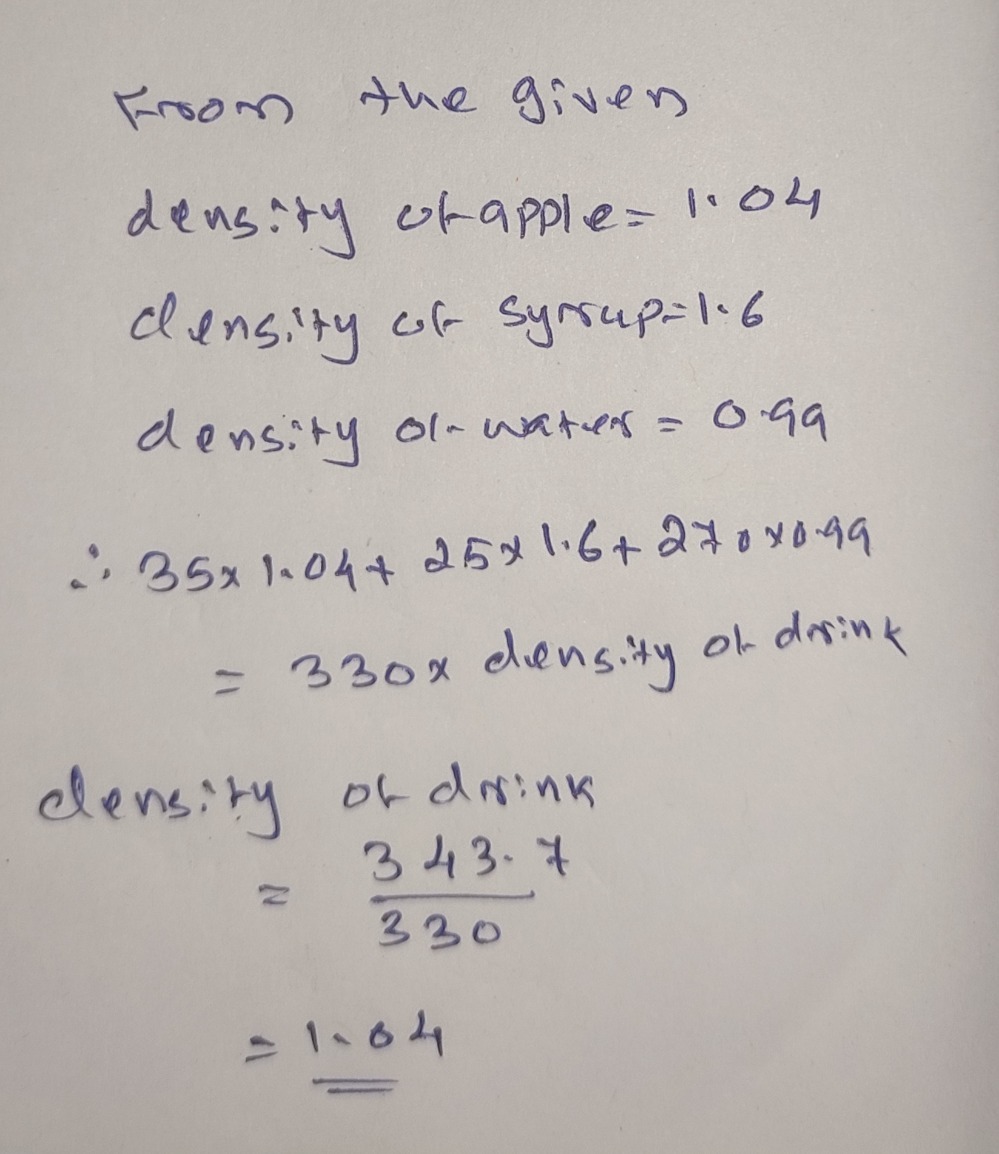 From the given
density of apple = 1.04
density of syrup = 1.6
density of water = 0.99
∴ 35x 1.04 + 25x 1.6 + 270 x 0.99
= 330x density of drink
density of drink
= 343.7
330
= 1.04